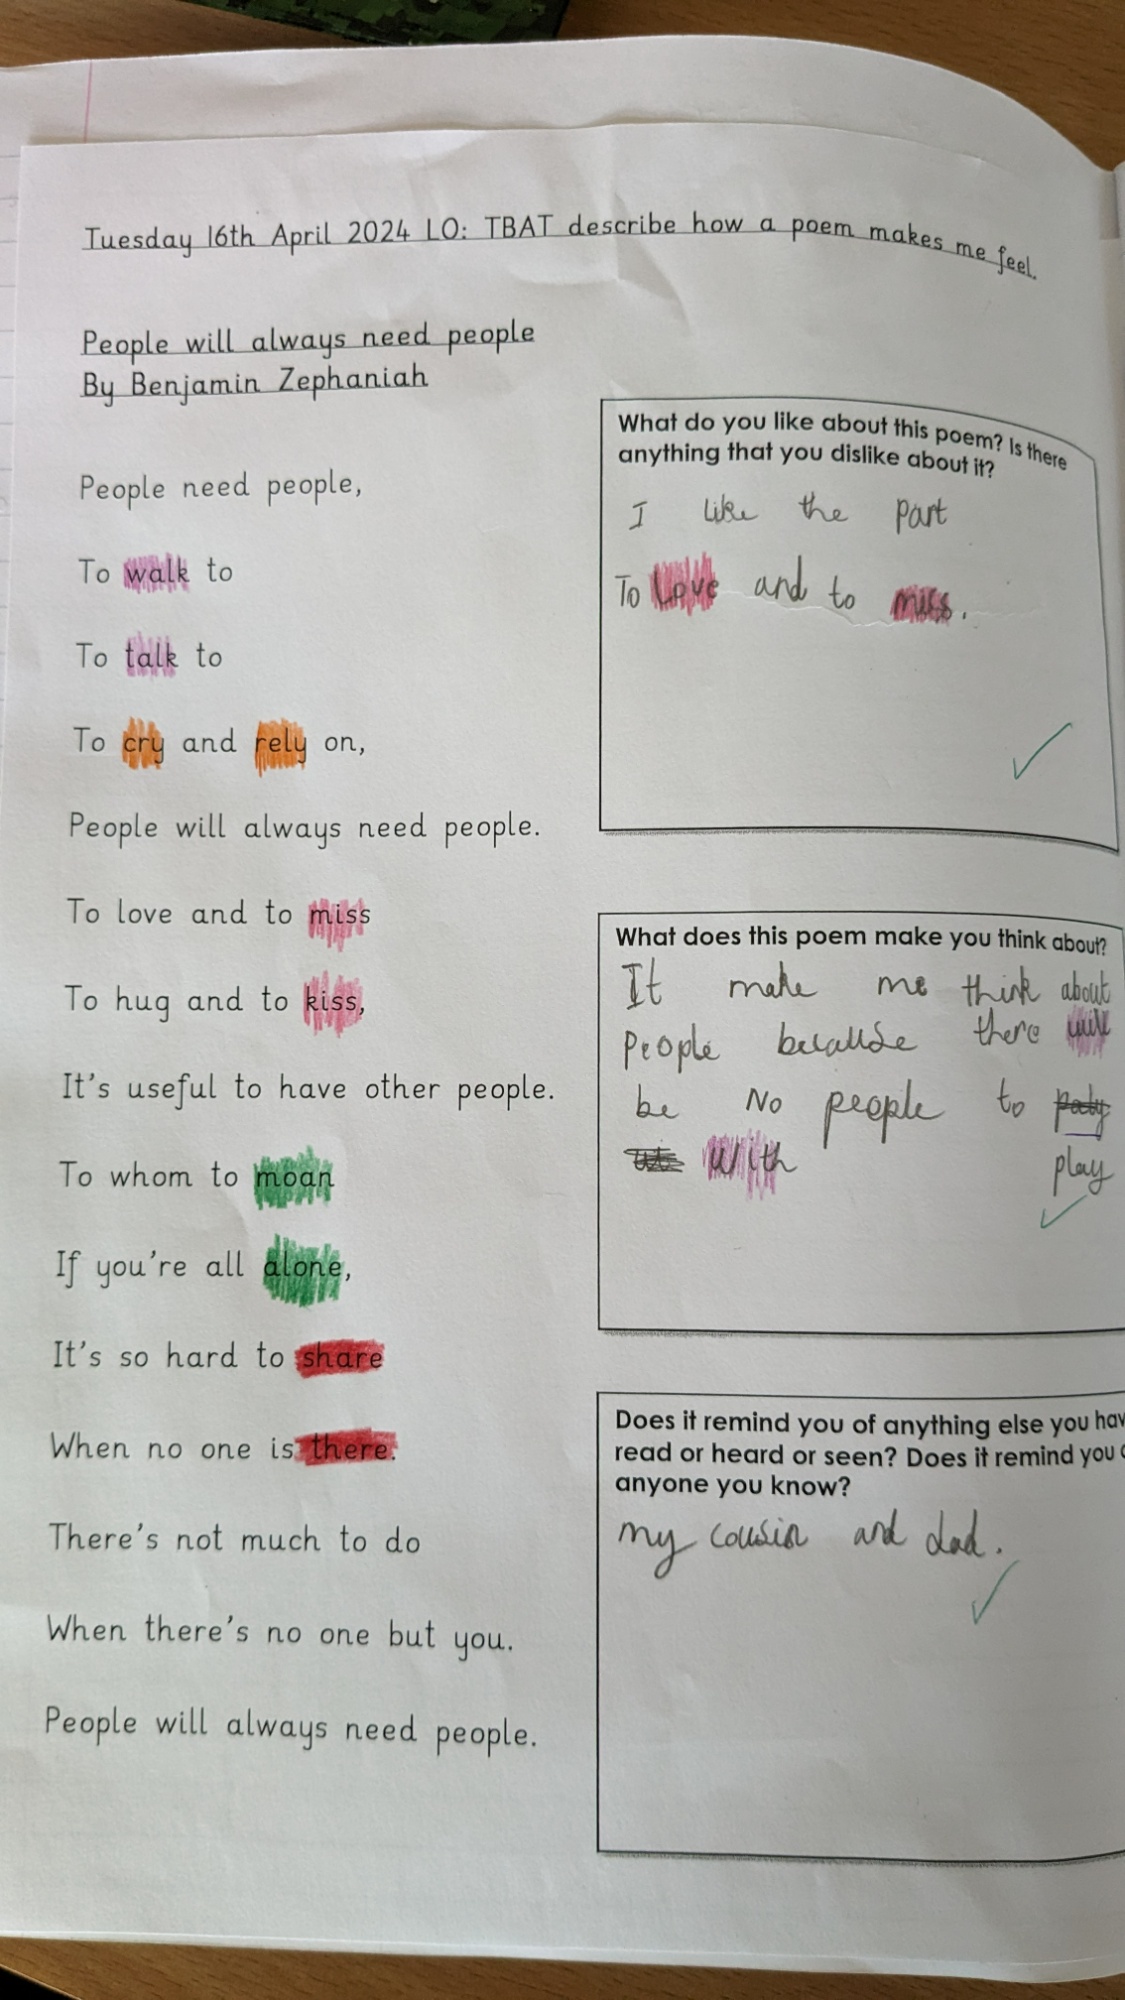 Tuesday 16th April 2024 LO: TBAT describe how a poem makes me feel.
People will always need people
By Benjamin Zephaniah
People need people,
To walk to
To talk to
To cry and rely on,
People will always need people.
To love and to miss
To hug and to kiss,
It's useful to have other people.
To whom to moan
If you're all alone,
It's so hard to share
When no one is there.
There's not much to do
When there's no one but you.
People will always need people.
What do you like about this poem? Is there
anything that you dislike about it?
I like the part
To Love and to miss.
What does this poem make you think about?
It make me think about
People because there will
be No people to
With play
Does it remind you of anything else you hav
read or heard or seen? Does it remind you
anyone you know?
my cousin and dad.